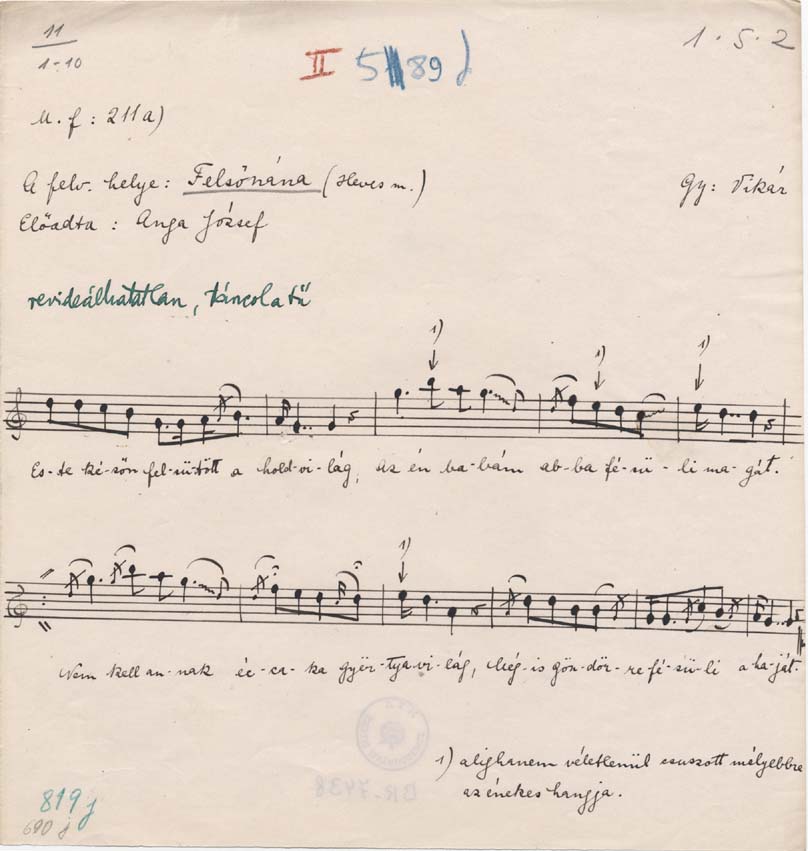 11
1-10
II 5 89 j
1 · 5 · 2
M. f : 211a)
A felv. helye : Felsőnána (Heves m.)
Gy: Vikár
Előadta : Anga József
revideálhatatlan, táncolatű
1) 1) 1)
Es-te ké-sőn fel-sü-tött a hold-vi-lág, az én ba-bám ab-ba fé-sü-li ma-gát.
1)
Nem kell an-nak éc-ca-ka gyër-tya vi-lág, Még-is gön-dör-re fé-sü-li a ha-ját.
1) alighanem véletlenül csuszott mélyebbre
az énekes hangja.
819 j
690 j